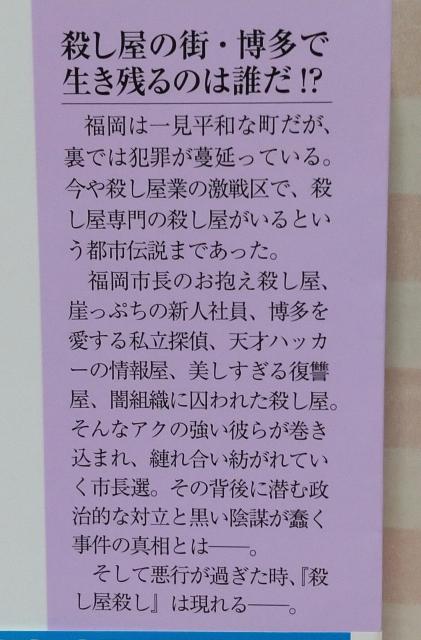 殺し屋の街・博多で
生き残るのは誰だ!?
福岡は一見平和な町だが、
裏では犯罪が蔓延っている。
今や殺し屋業の激戦区で、殺
し屋専門の殺し屋がいるとい
う都市伝説まであった。
福岡市長のお抱え殺し屋、
崖っぷちの新人社員、博多を
愛する私立探偵、天才ハッカ
ーの情報屋、美しすぎる復讐
屋、闇組織に囚われた殺し屋。
そんなアクの強い彼らが巻き
込まれ、縺れ合い紡がれてい
く市長選。その背後に潜む政
治的な対立と黒い陰謀が蠢く
事件の真相とは――。
そして悪行が過ぎた時、『殺
し屋殺し』は現れる――。